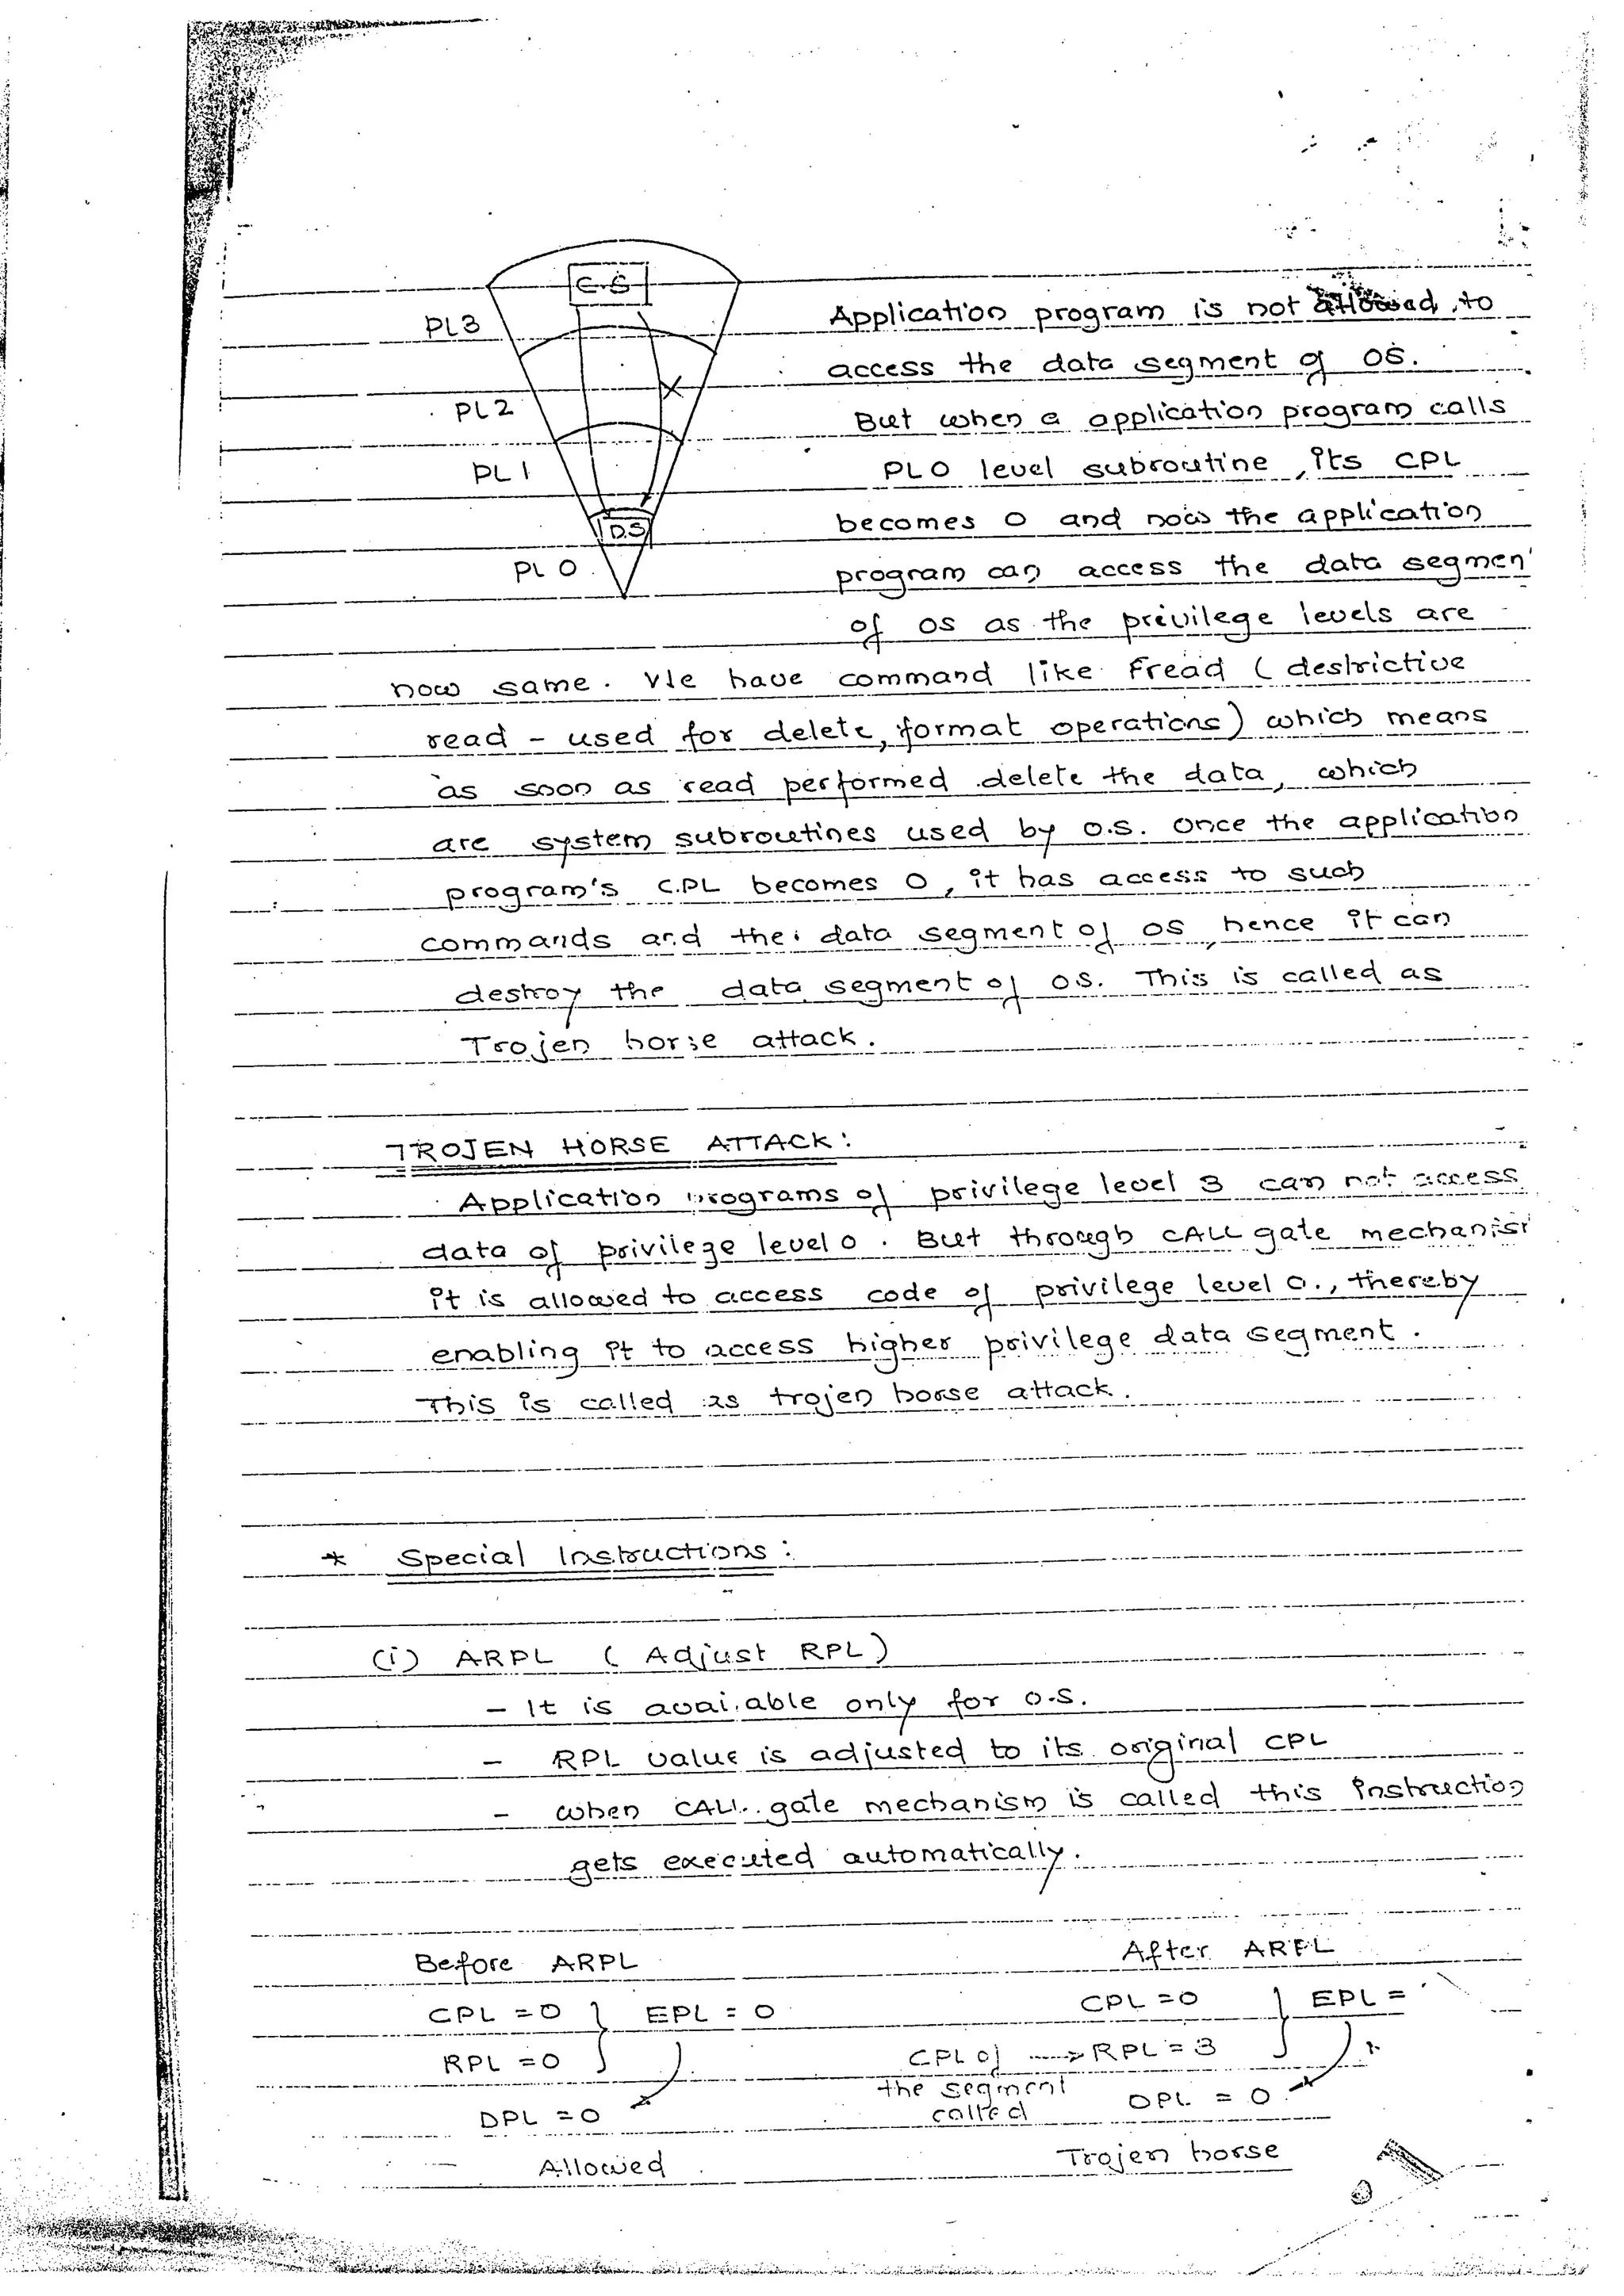 C.S
PL3
PL2
PL1
D.S
PL 0
Application program is not allowed to
access the data segment of OS.
But when a application program calls
PL0 level subroutine, its CPL
becomes 0 and now the application
program can access the data segmen
of OS as the privilege levels are
now same. We have command like Fread ( destrictive
read - used for delete, format operations) which means
as soon as read performed delete the data, which
are system subroutines used by O.S. Once the application
program's C.PL becomes 0, it has access to such
commands and the data segment of OS, hence it can
destroy the data segment of OS. This is called as
Trojen horse attack.
TROJEN HORSE ATTACK:
Application programs of privilege level 3 can not access
data of privilege level 0. But through CALL gate mechanis
it is allowed to access code of privilege level 0., thereby
enabling it to access higher privilege data segment.
This is called as trojen horse attack.
* Special Instructions:
(i) ARPL ( Adjust RPL)
- It is available only for O.S.
- RPL value is adjusted to its original CPL
- when CALL gate mechanism is called this instruction
gets executed automatically.
Before ARPL
CPL = 0 } EPL = 0
RPL = 0
DPL = 0
Allowed
After ARPL
CPL = 0 } EPL =
CPL of ----> RPL = 3
the segment
called
DPL = 0
Trojen horse